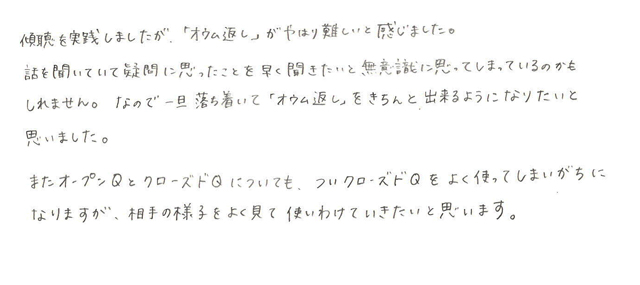 傾聴を実践しましたが、「オウム返し」がやはり難しいと感じました。
話を聞いていて疑問に思ったことを早く聞きたいと無意識に思ってしまっているのかも
しれません。なので一旦落ち着いて「オウム返し」をきちんと出来るようになりたいと
思いました。
またオープンQとクローズドQについても、ついクローズドQをよく使ってしまいがちに
なりますが、相手の様子をよく見て使いわけていきたいと思います。